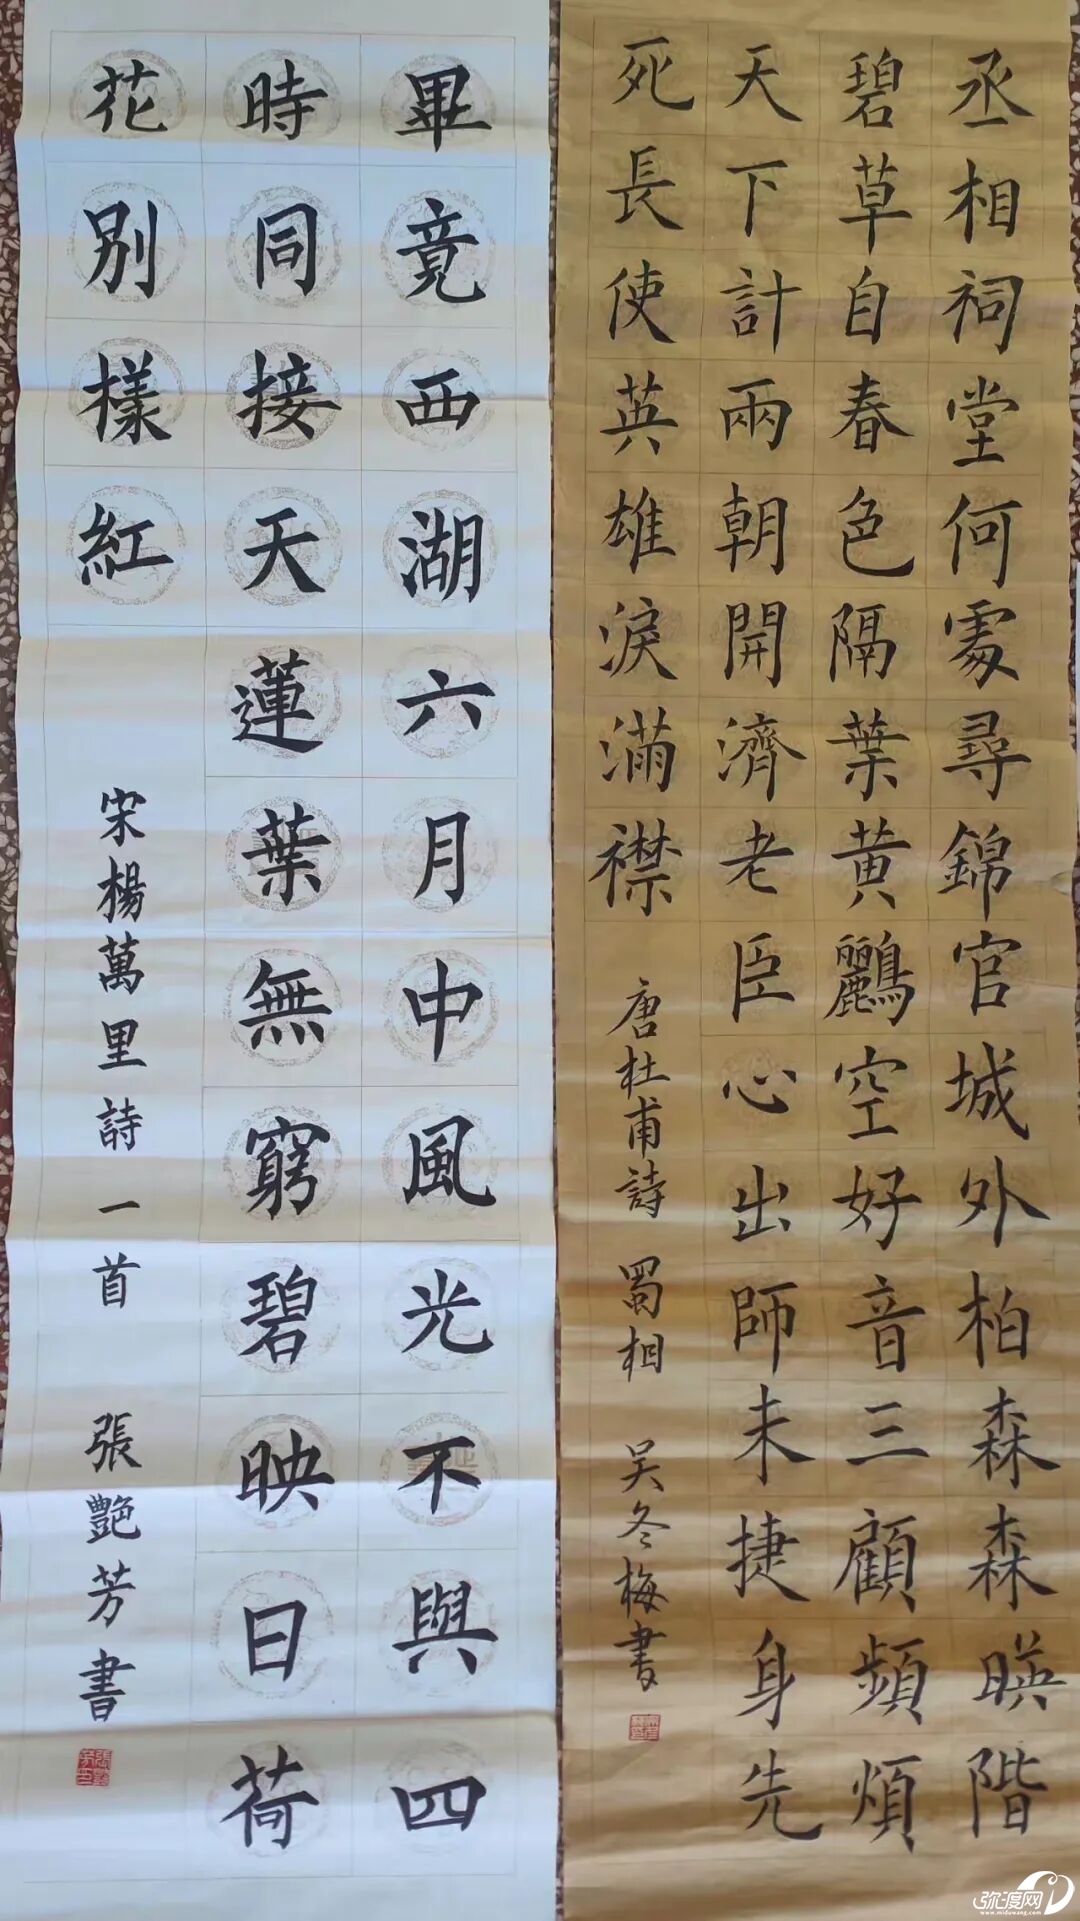 丞相祠堂何處尋錦官城外柏森森暎階
碧草自春色隔葉黄鸝空好音三顧頻煩
天下計兩朝開濟老臣心出師未捷身先
死長使英雄淚滿襟 唐杜甫詩 蜀相 吴冬梅書
畢竟西湖六月中風光不與四
時同接天蓮葉無窮碧映日荷
花別樣紅 宋楊萬里詩 一首 張艷芳書
弥渡网
www.miduwang.com